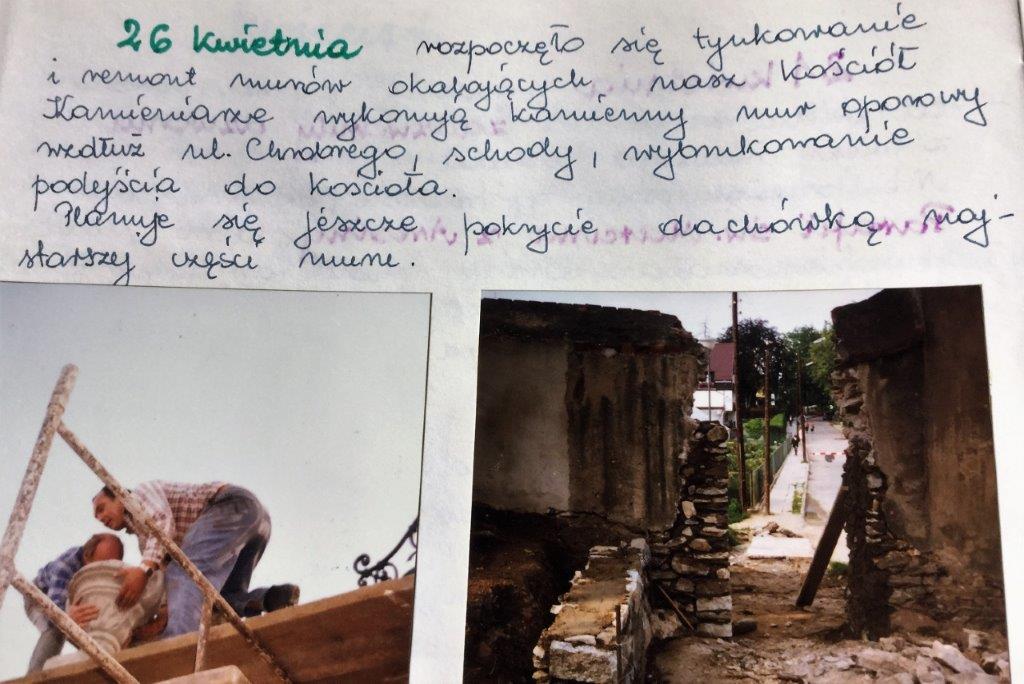 26 kwietnia rozpoczęło się tynkowanie
i remont murów okalających nasz kościół
Kamieniarze wykonują kamienny mur oporowy
wzdłuż ul. Chrobrego, schody, wybrukowanie
podejścia do kościoła.
Planuje się jeszcze pokrycie dachówką naj-
starszej części muru.